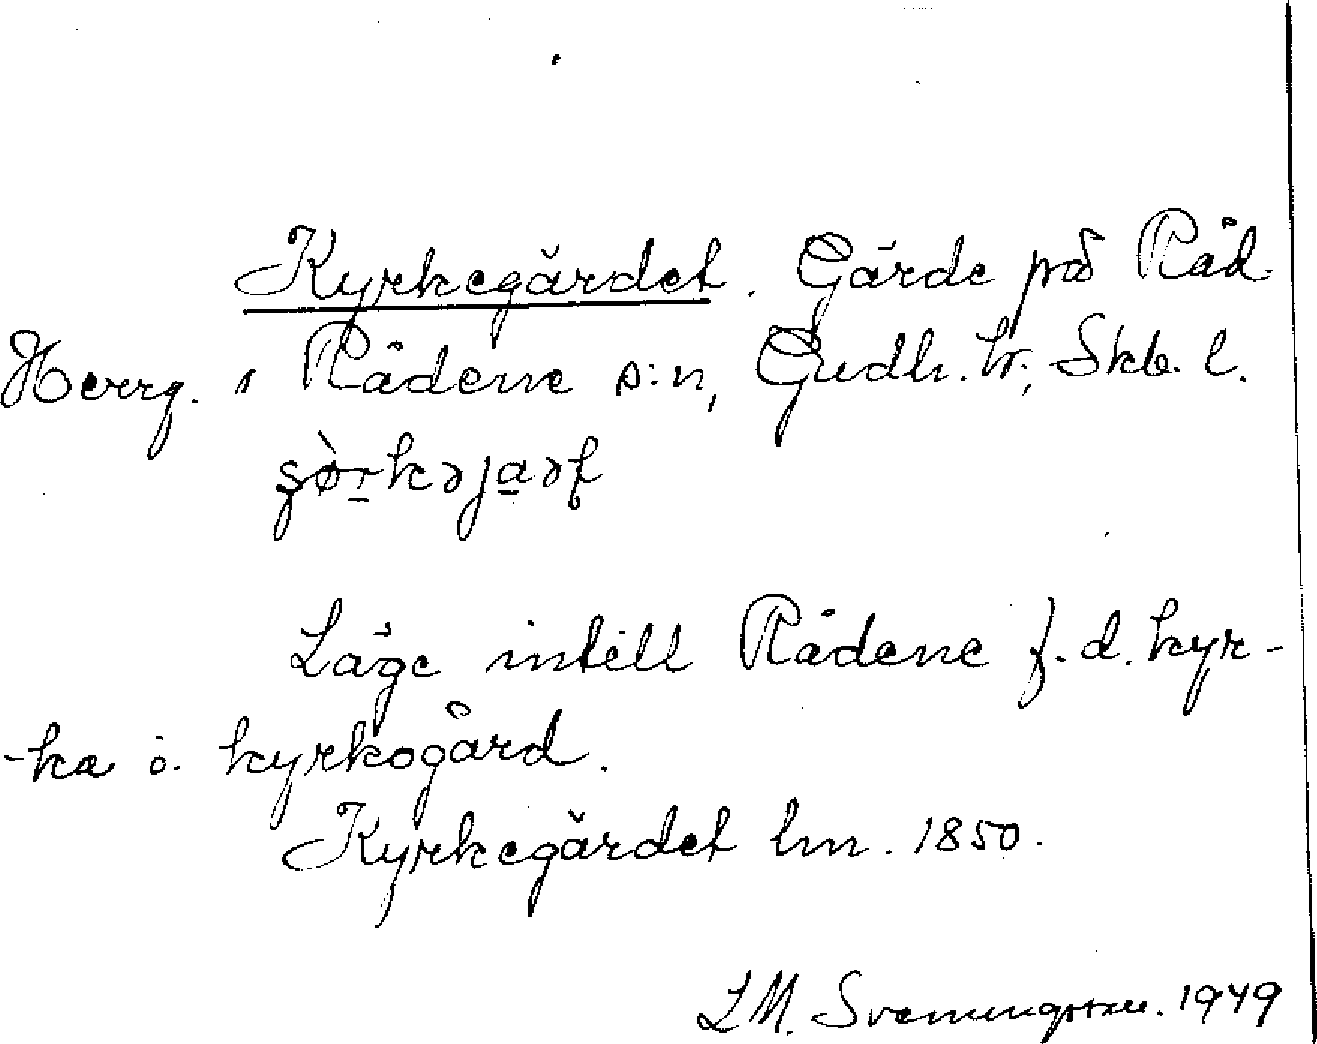 Kyrkegärdet. Gärde på Råd
Herrg. i Rådene s:n, Gudh. hr, Skb. l.
Läge intill Rådene f.d. kyr-
-ka o. kyrkogård.
Kyrkegärdet lm. 1850.
LM. Svenungsson. 1949